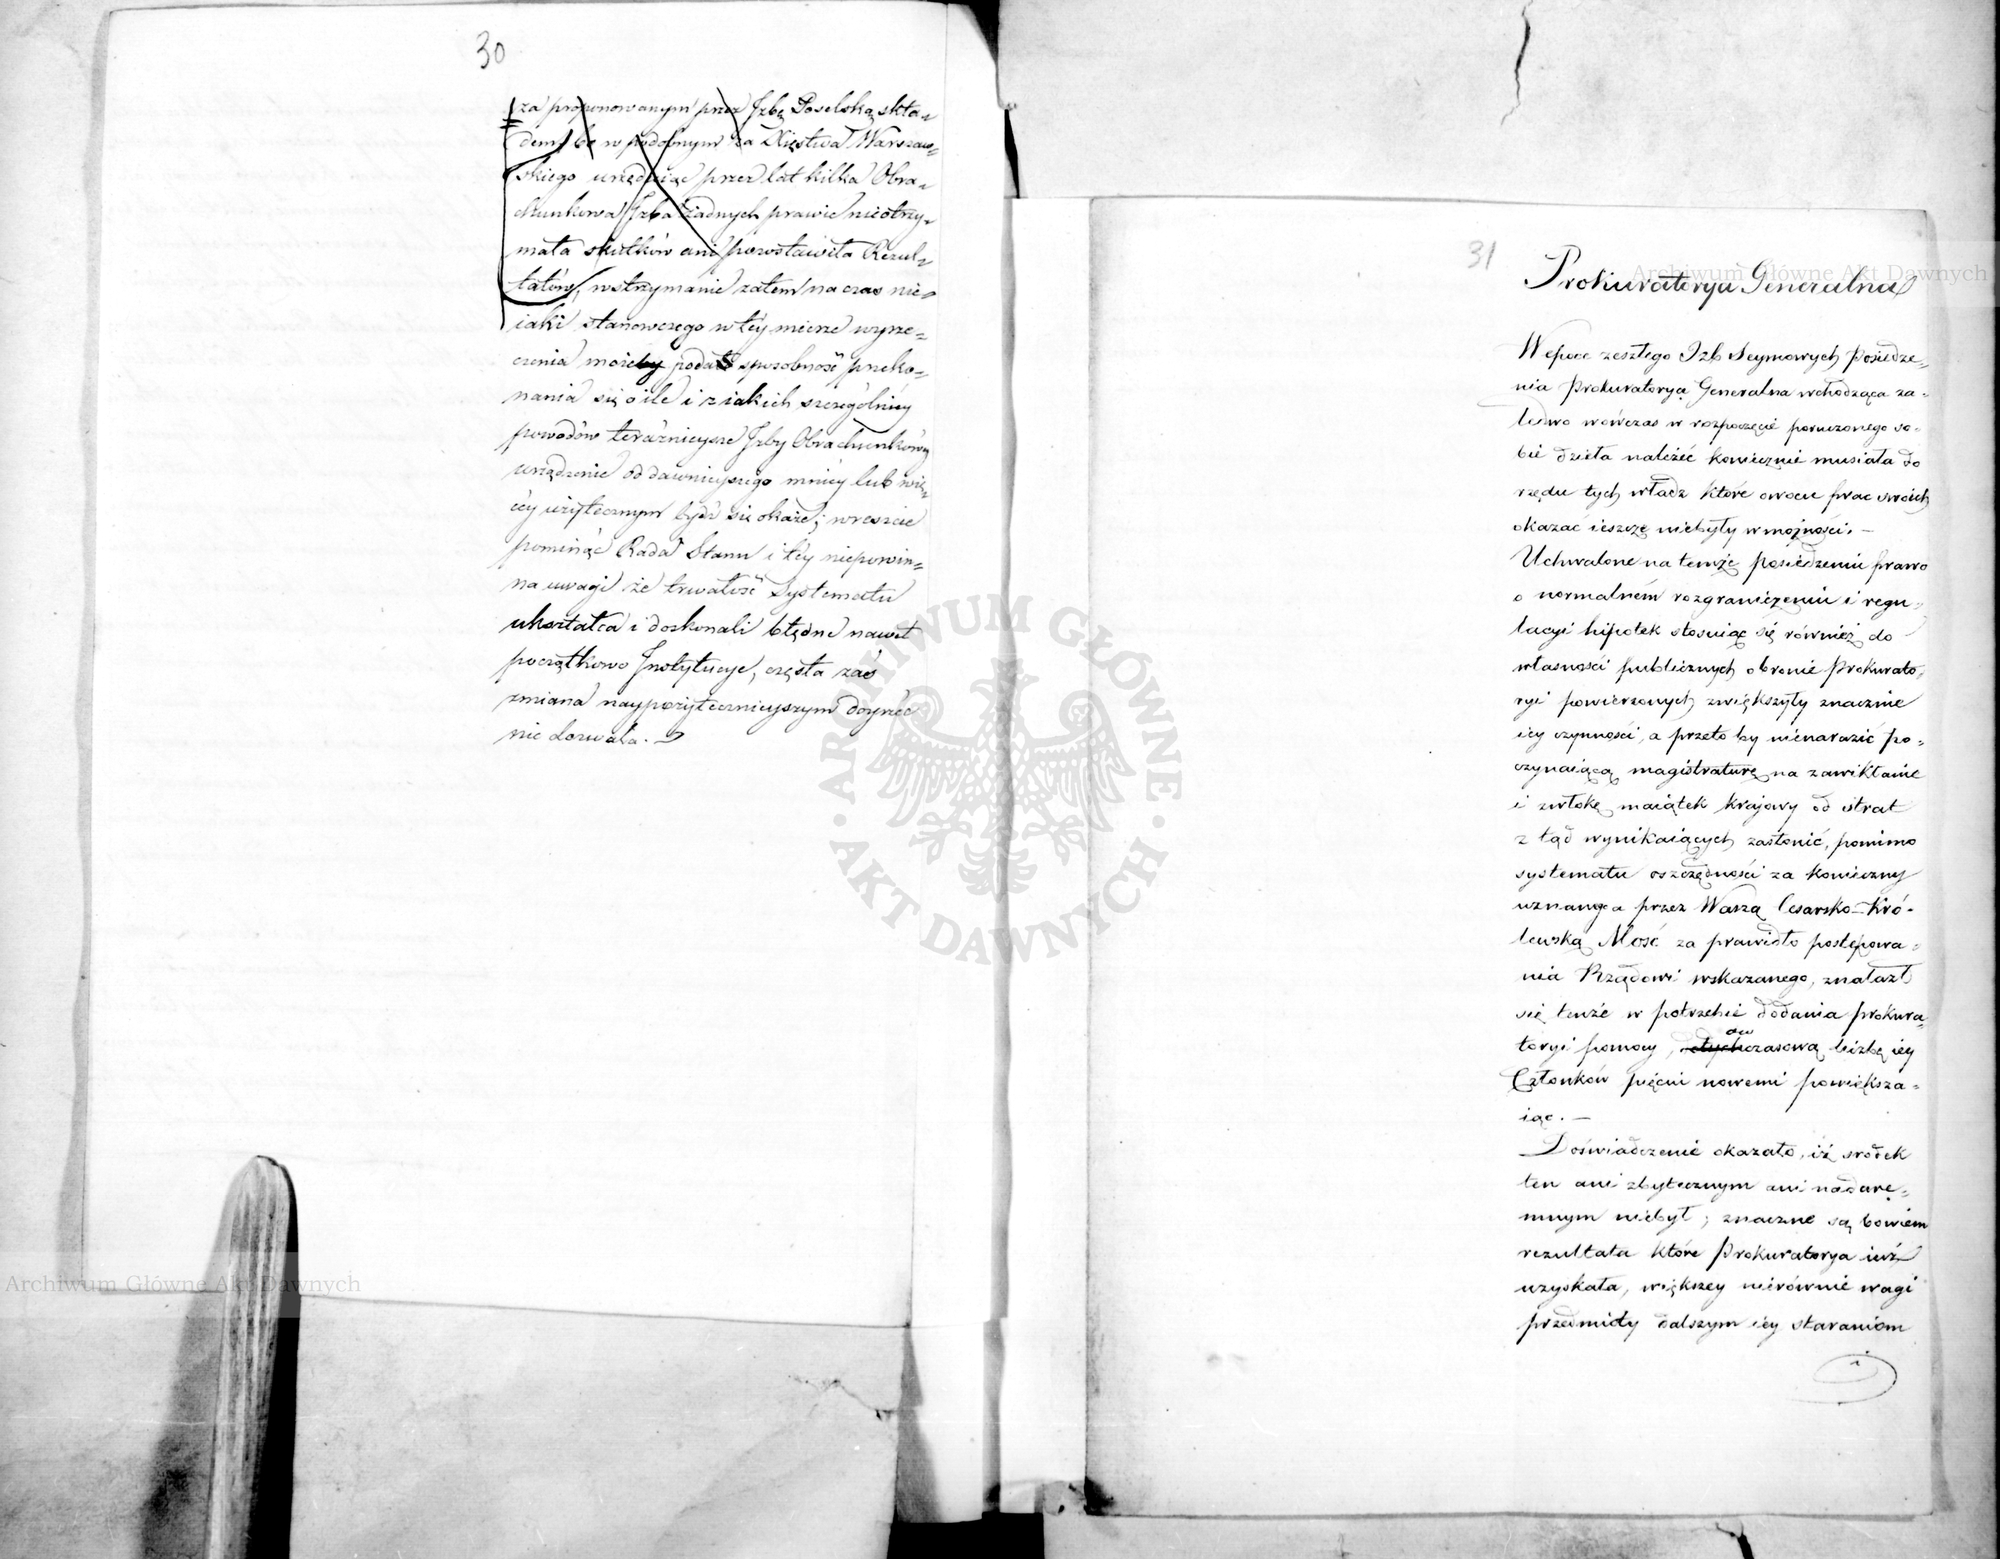 30
za proponowanym przez Jzbę Poselską skła-
dem, bo w podobnym za Xięstwa Warszaw-
skiego urzędując przez lat kilka Obra-
chunkowa Jzba żadnych prawie nieotrzy-
mała skutków ani pozostawiła Rezul-
tatów, wstrzymanie zatem na czas nie-
iaki stanowczego w téy mierze wyrze-
czenia możeby podać sposobność przeko-
nania się o ile i z iakich szczególniéy
powodów teraźnieysze Jzby Obrachunkowéy
urządzenie od dawnieyszego mniéy lub wię-
céy użytecznym bydź się okaże; wreszcie
pominąć Rada Stanu i téy niepowin-
na uwagi że trwałość Systematu
ukształca i doskonali błędne nawet
początkowo Jnstytucye, częsta zaś
zmiana naypożytecznieyszym doyrzéć
nie dozwala.
31
Prokuratorya Generalna
W epoce zeszłego Izb Seymowych posiedze-
nia Prokuratorya Generalna wchodząca za-
ledwo wówczas w rozpoczęcie poruczonego so-
bie dzieła należéć koniecznie musiała do
rzędu tych władz które owocu prac swoich
okazać ieszcze niebyły w możności. —
Uchwalone na temże posiedzeniu prawo
o normalném rozgraniczeniu i regu-
lacyi hipotek stosuiąc się również do
własności publicznych obronie Prokurato-
ryi powierzonych zwiększyły znacznie
iey czynności, a przeto by nienarazić po-
czynaiącą magistraturę na zawikłanie
i zwłokę maiątek krajowy od strat
z tąd wynikaiących zasłonić, pomimo
systematu oszczędności za konieczny
uznanego a przez Waszą Cesarsko-Kró-
lewską Mość za prawidło postępowa-
nia Rządowi wskazanego, znalazł
się tenże w potrzebie dodania Prokura-
toryi pomocy, ow czasową liczbę iey
Członków pięciu nowemi powiększa-
iąc. —
Doświadczenie okazało, iż srodek
ten ani zbytecznym ani nadare-
mnym niebył; znaczne są bowiem
rezultata które Prokuratorya iuż
uzyskała, większey nierównie wagi
przedmioty dalszym iey staraniom
Archiwum Główne Akt Dawnych
ARCHIWUM GŁÓWNE · AKT DAWNYCH ·
Archiwum Główne Akt Dawnych